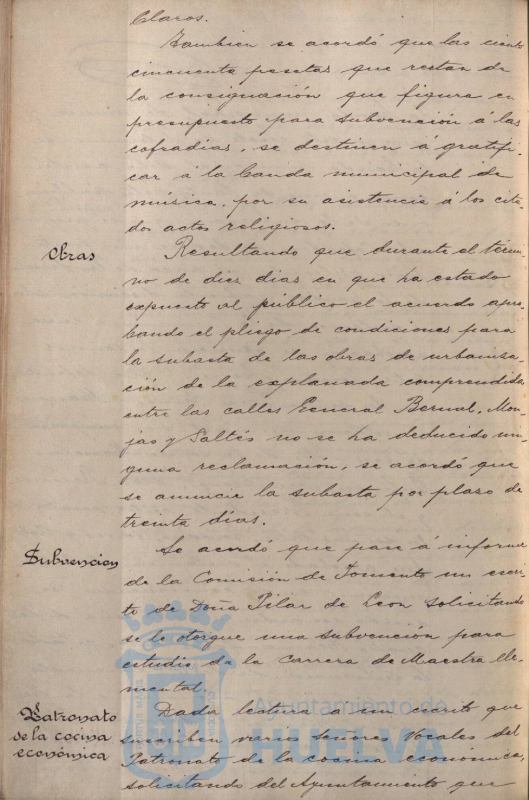 Claros.
Tambien se acordó que las ciento
cincuenta pesetas que restan de
la consignación que figura en
presupuesto para subvención á las
cofradias, se destinen á gratifi-
car á la banda municipal de
música, por su asistencia á los cita-
dos actos religiosos.
Obras
Resultando que durante el térmi-
no de diez dias en que ha estado
expuesto al público el acuerdo apro-
bando el pliego de condiciones para
la subasta de las obras de urbaniza-
ción de la explanada comprendida
entre las calles General Bernal, Mon-
jas y Saltés no se ha deducido nin-
guna reclamación, se acordó que
se anuncie la subasta por plazo de
treinta dias.
Subvencion
Se acordó que pase á informe
de la Comisión de Fomento un escri-
to de Doña Pilar de Leon solicitando
se le otorgue una subvención para
estudio de la carrera de Maestra ele-
mental.
Patronato
de la cocina
económica
Dada lectura á un escrito que
suscriben varios señores Vocales del
Patronato de la cocina económica,
solicitando del Ayuntamiento que
Ayuntamiento de
HUELVA